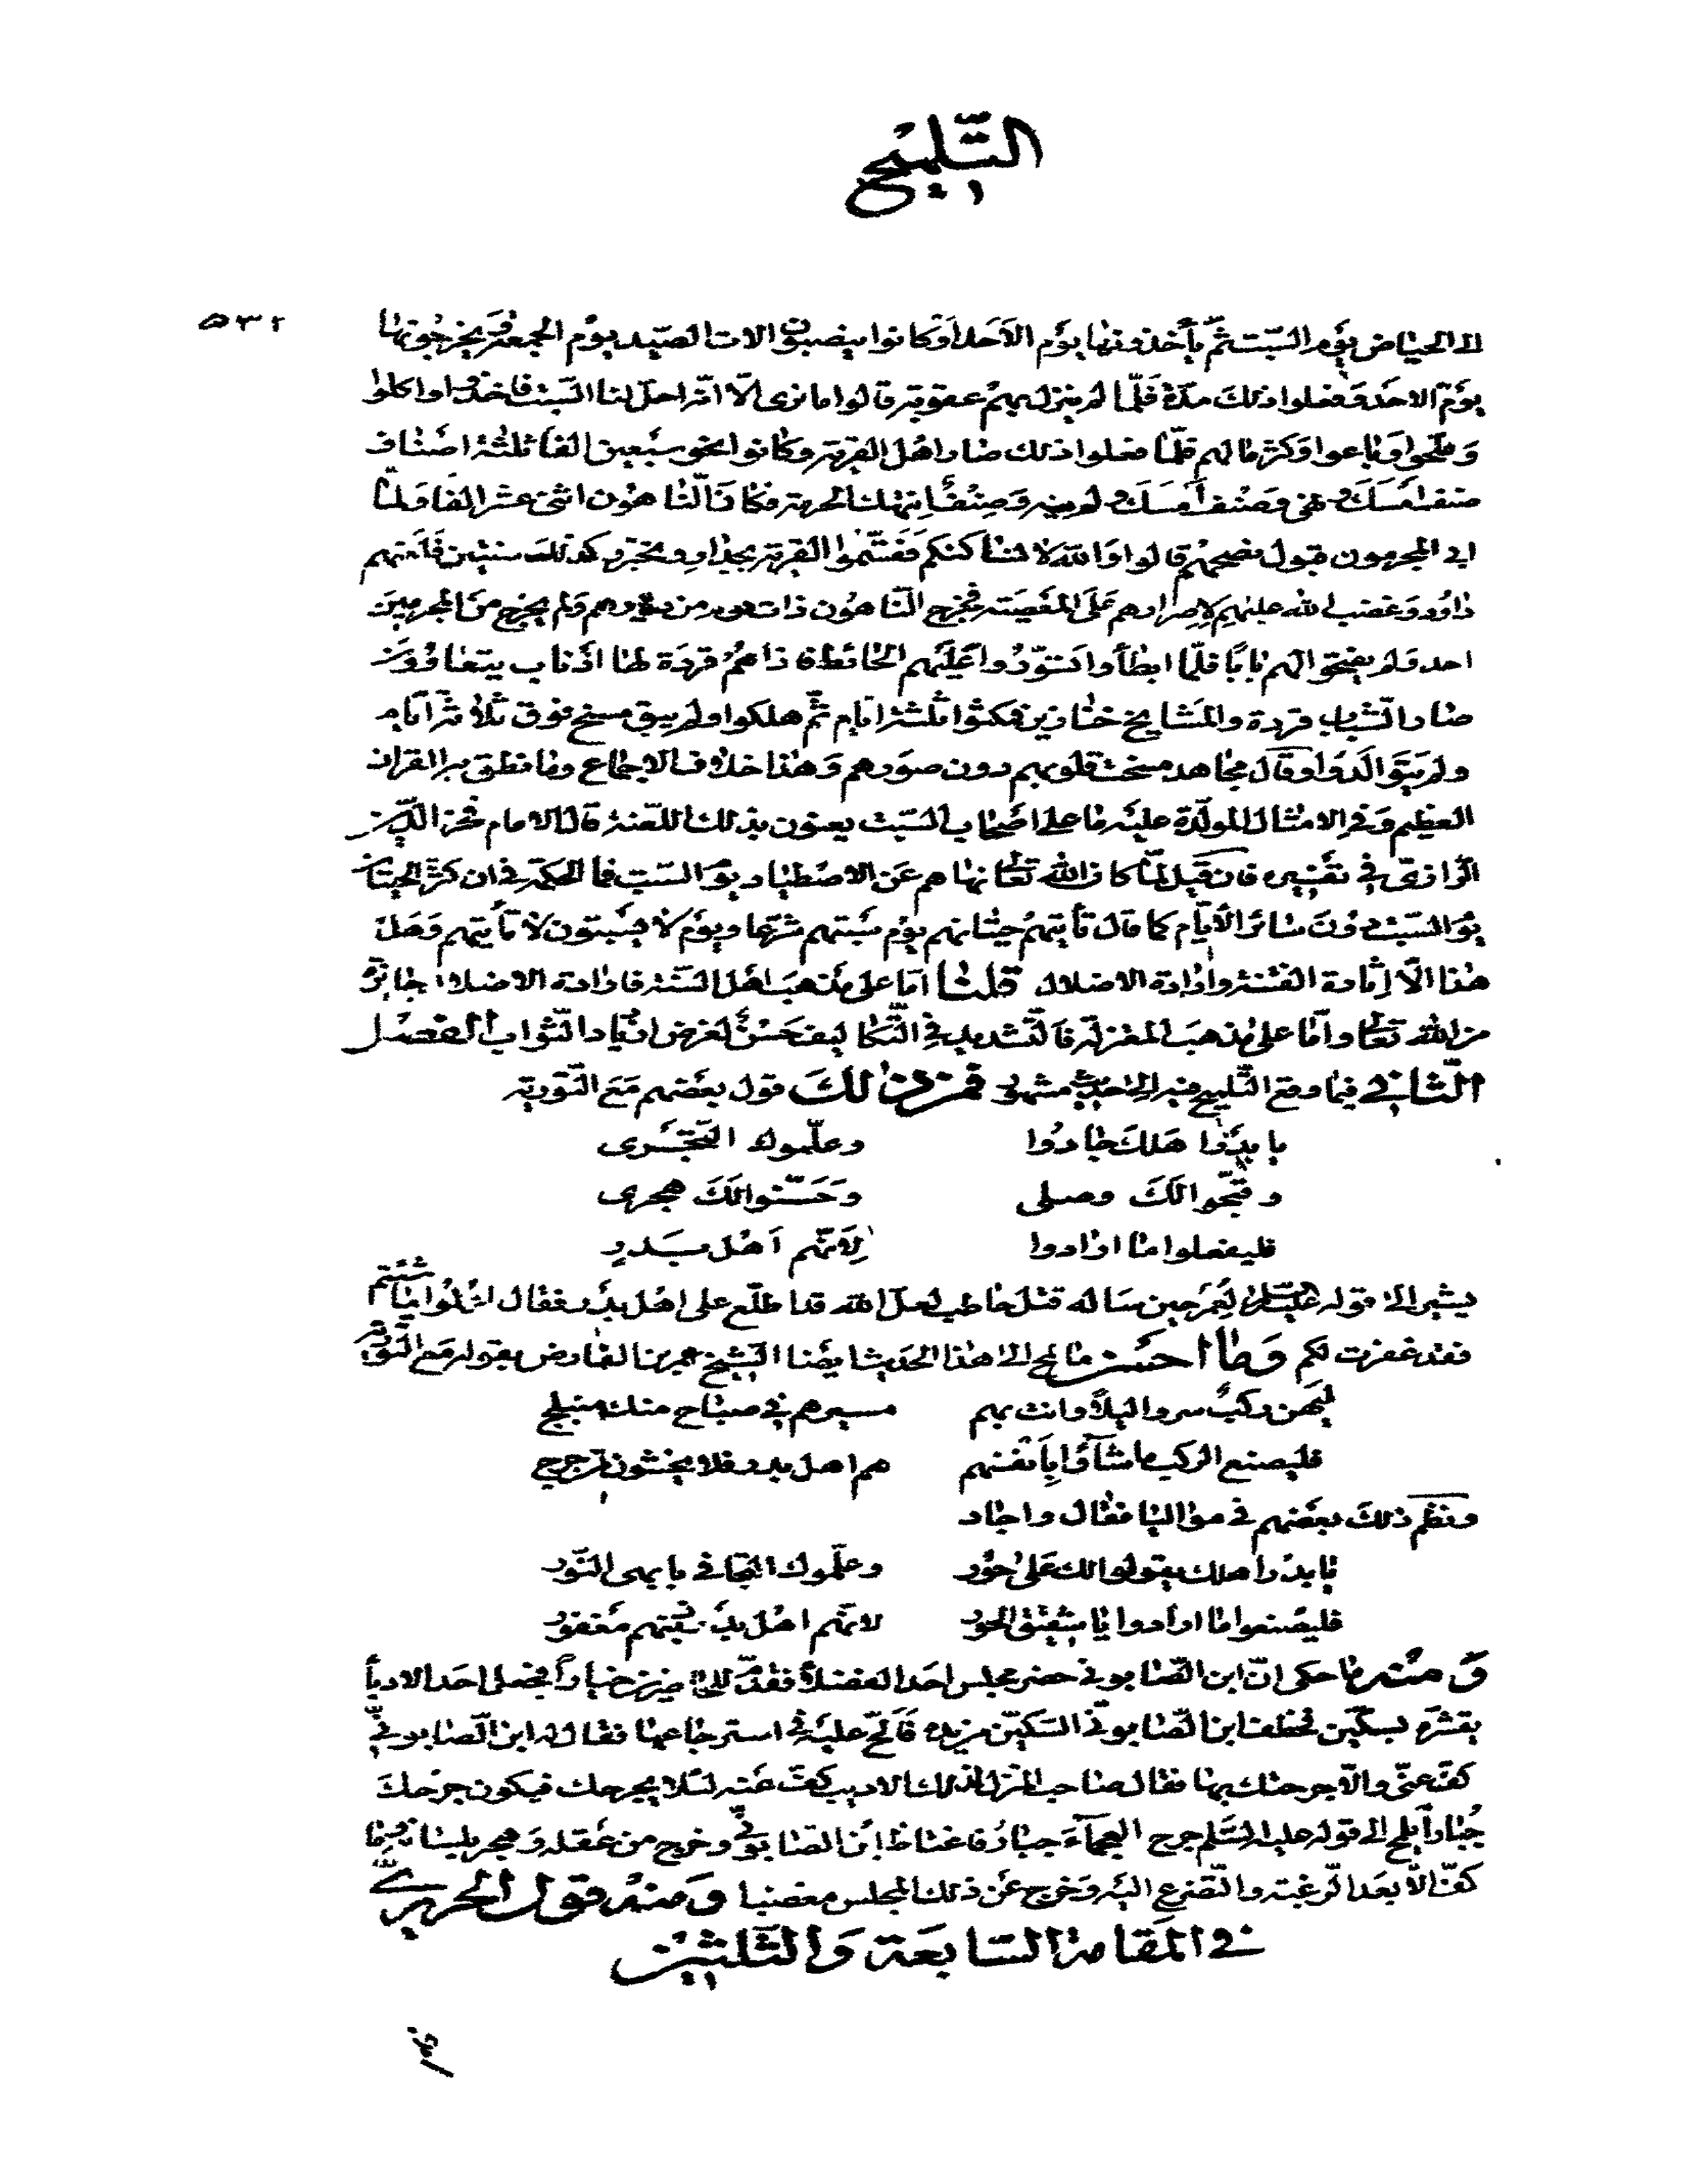 التلميح
٥٣٢
الى الحياض يوم السبت ثم يأخذونها يوم الاحد او كانوا ينصبون الات الصيد يوم الجمعة ثم يخرجونها
يوم الاحد ففعلوا ذلك مدة فلما لم ينزل بهم عقوبة قالوا ما نرى الا انه احل لنا السبت فاخذوا واكلوا
وملحوا وباعوا وكثر مالهم فلما فعلوا ذلك صار اهل القرية وكانوا نحو سبعين الفا ثلثة اصناف
صنف امسك ونهى وصنف امسك ولم ينه وصنف انتهك الحرمة فكان الناهون اثنى عشر الفا ولما
ابى المجرمون قبول نصحهم قالوا والله لا نساكنكم فقسموا القرية بجدار ومختر كذلك سنتين فلعنهم
داود وغضب الله عليهم لاصرارهم على المعصية فخرج الناهون ذات يوم من دورهم ولم يخرج من المجرمين
احد ولم يفتحوا لهم بابا فلما ابطأوا تسوروا عليهم الحائط فاذا هم قردة لها اذناب يتعاوون
صار الشباب قردة والمشايخ خنازير فمكثوا ثلثة ايام ثم هلكوا ولم يبق مسخ فوق ثلاثة ايام
ولم يتوالدوا وقال مجاهد مسخت قلوبهم دون صورهم وهذا خلاف الاجماع وما نطق به القران
العظيم وفى الامثال المولدة عليه ما على اصحاب السبت يعنون بذلك اللعنة قال الامام فخر الدين
الرازى فى تفسيره فان قيل لما كان الله تعالى نهاهم عن الاصطياد يوم السبت فما الحكمة فى ان كثر الحيتان
يوم السبت دون سائر الايام كما قال تأتيهم حيتانهم يوم سبتهم شرعا ويوم لا يسبتون لا تأتيهم وهل
هذا الا اثارة الفتنة وارادة الاضلال قلنا اما على مذهب اهل السنة فارادة الاضلال جائزة
من الله تعالى واما على مذهب المعتزلة فالتشديد فى التكاليف حسن لغرض ازدياد الثواب الفصل
الثانى فيما وقع التلميح فيه الى حديث مشهور فمن ذلك قول بعضهم مع التورية
يا بدر اهلك جاروا وعلموك التجرى
وقبحوا لك وصلى وحسنوا لك هجرى
فليفعلوا ما ارادوا لانهم اهل بدر
يشير الى قوله عليه السلام لعمر حين ساله قتل حاطب لعل الله قد اطلع على اهل بدر فقال اعملوا ما شئتم
فقد غفرت لكم وما احسن ما لمح الى هذا الحديث ايضا الشيخ عمر بن الفارض بقوله مع التورية
ليهن ركب سروا ليلا وانت بهم مسيرهم فى صباح منك منبلج
فليصنع الركب ما شاؤا بانفسهم هم اهل بدر فلا يخشون من حرج
ونظم ذلك بعضهم فى مواليا فقال واجاد
يا بدر اهلك يقولوا لك على جور وعلموك التجافى يا بهى النور
فليصنعوا ما ارادوا يا شقيق الحور لانهم اهل بدر ذنبهم مغفور
ومنه ما حكى ان ابن الصابونى حضر مجلس احد الفضلاء فقدم للحاضرين خيارا فجعل احد الادباء
يقشره بسكين فخطف ابن الصابونى السكين من يده فألح عليه فى استرجاعها فقال له ابن الصابونى
كف عنى والا جرحتك بها فقال صاحب المنزل لذلك الاديب كف عنه لئلا يجرحك فيكون جرحك
جبارا يلمح الى قوله عليه السلام جرح العجماء جبار فاغتاظ ابن الصابونى وخرج من عقله وهجر بلسانه وما
كف الا بعد الرغبة والتضرع اليه وخرج عن ذلك المجلس مغضبا ومنه قول الحريرى
فى المقامة السابعة والثلثين